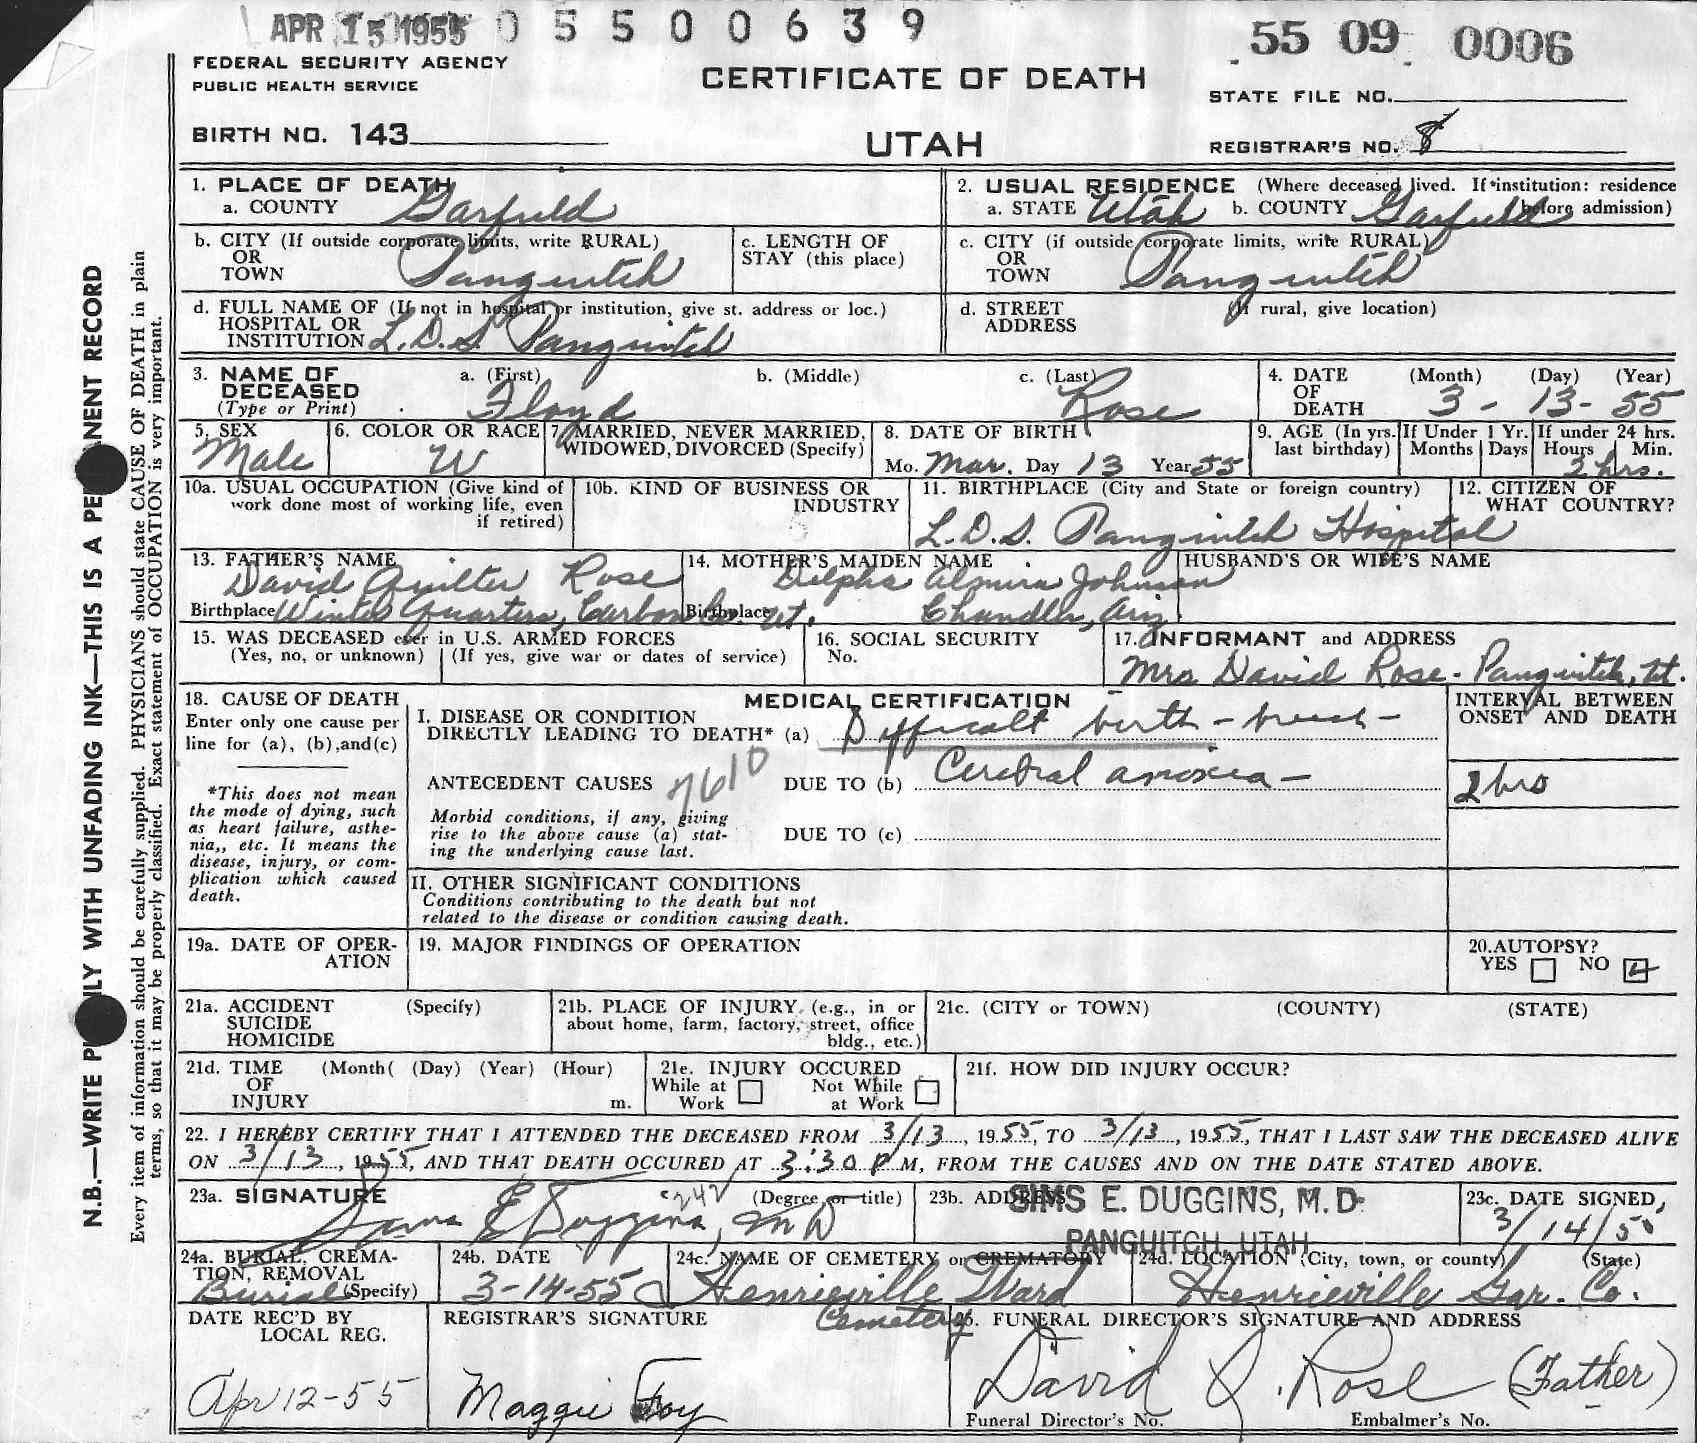 APR 15 1955 0 5 5 0 0 6 3 9
55 09 0006
FEDERAL SECURITY AGENCY
PUBLIC HEALTH SERVICE
CERTIFICATE OF DEATH
STATE FILE NO.
BIRTH NO. 143
UTAH
REGISTRAR'S NO. 8
1. PLACE OF DEATH
a. COUNTY Garfield
2. USUAL RESIDENCE (Where deceased lived. If institution: residence before admission)
a. STATE Utah b. COUNTY Garfield
b. CITY (If outside corporate limits, write RURAL)
OR
TOWN Panguitch
c. LENGTH OF
STAY (this place)
c. CITY (if outside corporate limits, write RURAL)
OR
TOWN Panguitch
d. FULL NAME OF (If not in hospital or institution, give st. address or loc.)
HOSPITAL OR
INSTITUTION L.D.S. Panguitch
d. STREET (If rural, give location)
ADDRESS
3. NAME OF
DECEASED
(Type or Print)
a. (First) b. (Middle) c. (Last)
Floyd Rose
4. DATE (Month) (Day) (Year)
OF
DEATH 3 - 13 - 55
5. SEX
Male
6. COLOR OR RACE
W
7. MARRIED, NEVER MARRIED,
WIDOWED, DIVORCED (Specify)
8. DATE OF BIRTH
Mo. Mar. Day 13 Year 55
9. AGE (In yrs.
last birthday)
If Under 1 Yr.
Months Days
If under 24 hrs.
Hours Min.
2 hrs.
10a. USUAL OCCUPATION (Give kind of
work done most of working life, even
if retired)
10b. KIND OF BUSINESS OR
INDUSTRY
11. BIRTHPLACE (City and State or foreign country)
L.D.S. Panguitch Hospital
12. CITIZEN OF
WHAT COUNTRY?
13. FATHER'S NAME
David Quilter Rose
Birthplace Winter Quarters, Carbon Co. Ut.
14. MOTHER'S MAIDEN NAME
Delpha Almira Johnson
Birthplace Chandler, Ariz
HUSBAND'S OR WIFE'S NAME
15. WAS DECEASED ever in U.S. ARMED FORCES
(Yes, no, or unknown) (If yes, give war or dates of service)
16. SOCIAL SECURITY
No.
17. INFORMANT and ADDRESS
Mrs David Rose - Panguitch, Ut.
18. CAUSE OF DEATH
Enter only one cause per
line for (a), (b), and (c)
*This does not mean
the mode of dying, such
as heart failure, asthe-
nia,, etc. It means the
disease, injury, or com-
plication which caused
death.
MEDICAL CERTIFICATION
I. DISEASE OR CONDITION
DIRECTLY LEADING TO DEATH* (a) Difficult birth - breech -
ANTECEDENT CAUSES 7610 DUE TO (b) Cerebral anoxia -
Morbid conditions, if any, giving
rise to the above cause (a) stat-
ing the underlying cause last.
DUE TO (c)
II. OTHER SIGNIFICANT CONDITIONS
Conditions contributing to the death but not
related to the disease or condition causing death.
INTERVAL BETWEEN
ONSET AND DEATH
2 hrs
19a. DATE OF OPER-
ATION
19. MAJOR FINDINGS OF OPERATION
20. AUTOPSY?
YES NO
21a. ACCIDENT (Specify)
SUICIDE
HOMICIDE
21b. PLACE OF INJURY (e.g., in or
about home, farm, factory, street, office
bldg., etc.)
21c. (CITY or TOWN) (COUNTY) (STATE)
21d. TIME (Month( (Day) (Year) (Hour)
OF
INJURY m.
21e. INJURY OCCURED
While at Not While
Work at Work
21f. HOW DID INJURY OCCUR?
22. I HEREBY CERTIFY THAT I ATTENDED THE DECEASED FROM 3/13, 1955, TO 3/13, 1955, THAT I LAST SAW THE DECEASED ALIVE
ON 3/13, 1955, AND THAT DEATH OCCURED AT 3:30 P M, FROM THE CAUSES AND ON THE DATE STATED ABOVE.
23a. SIGNATURE (Degree or title)
Sims E Duggins, MD
23b. ADDRESS
SIMS E. DUGGINS, M.D.
PANGUITCH, UTAH
23c. DATE SIGNED,
3/14/55
24a. BURIAL, CREMA-
TION, REMOVAL
(Specify) Burial
24b. DATE
3-14-55
24c. NAME OF CEMETERY or CREMATORY
Henrieville Ward
Cemetery
24d. LOCATION (City, town, or county) (State)
Henrieville Gar. Co.
DATE REC'D BY
LOCAL REG.
Apr 12-55
REGISTRAR'S SIGNATURE
Maggie Foy
25. FUNERAL DIRECTOR'S SIGNATURE AND ADDRESS
David Q. Rose (Father)
Funeral Director's No. Embalmer's No.
N.B.—WRITE PLAINLY WITH UNFADING INK—THIS IS A PERMANENT RECORD
Every item of information should be carefully supplied. PHYSICIANS should state CAUSE OF DEATH in plain
terms, so that it may be properly classified. Exact statement of OCCUPATION is very important.